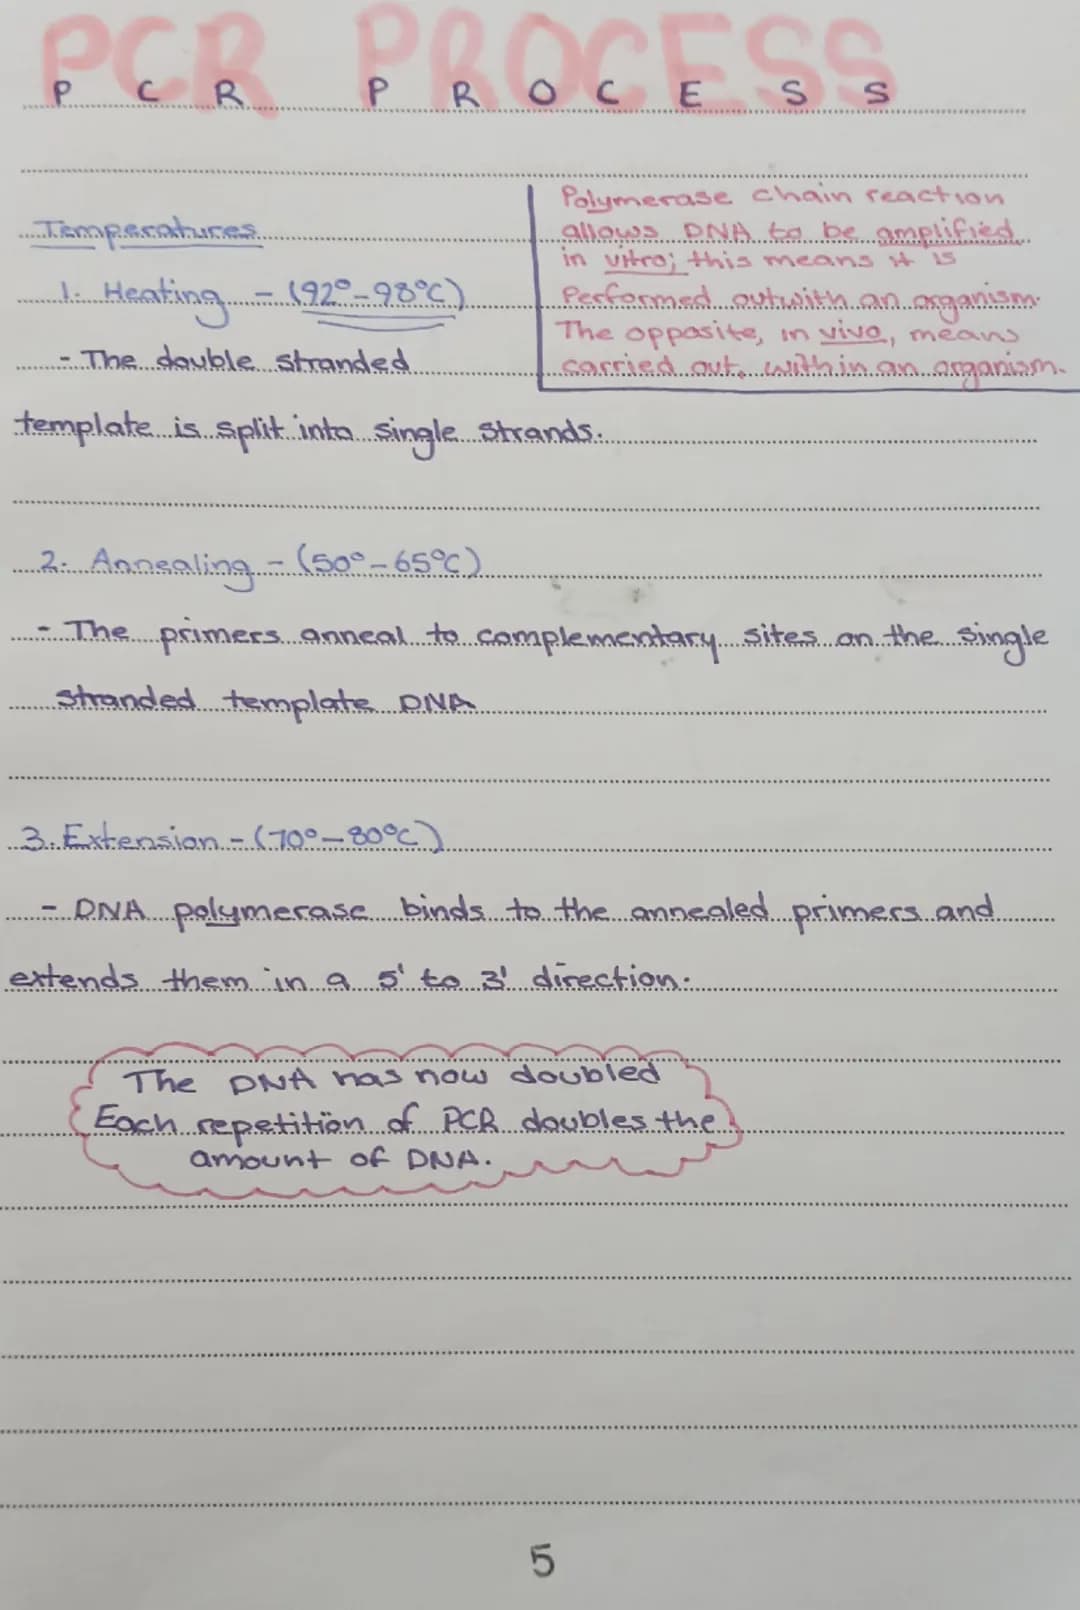 PCR PROCESS
P C R P R O C E S S
Polymerase chain reaction
allows DNA to be amplified
in vitro; this means it is
Performed outwith an organism.
The opposite, in vivo, means
carried out, within an organism.
Temperatures
1. Heating - (92°-98°C)
- The double stranded
template is split into single strands.
2. Annealing - (50°-65°C)
- The primers anneal to complementary sites on the single
stranded template DNA
3. Extension - (70°-80°C)
- DNA polymerase binds to the annealed primers and
extends them in a 5' to 3' direction.
The DNA has now doubled
Each repetition of PCR doubles the
amount of DNA.
5